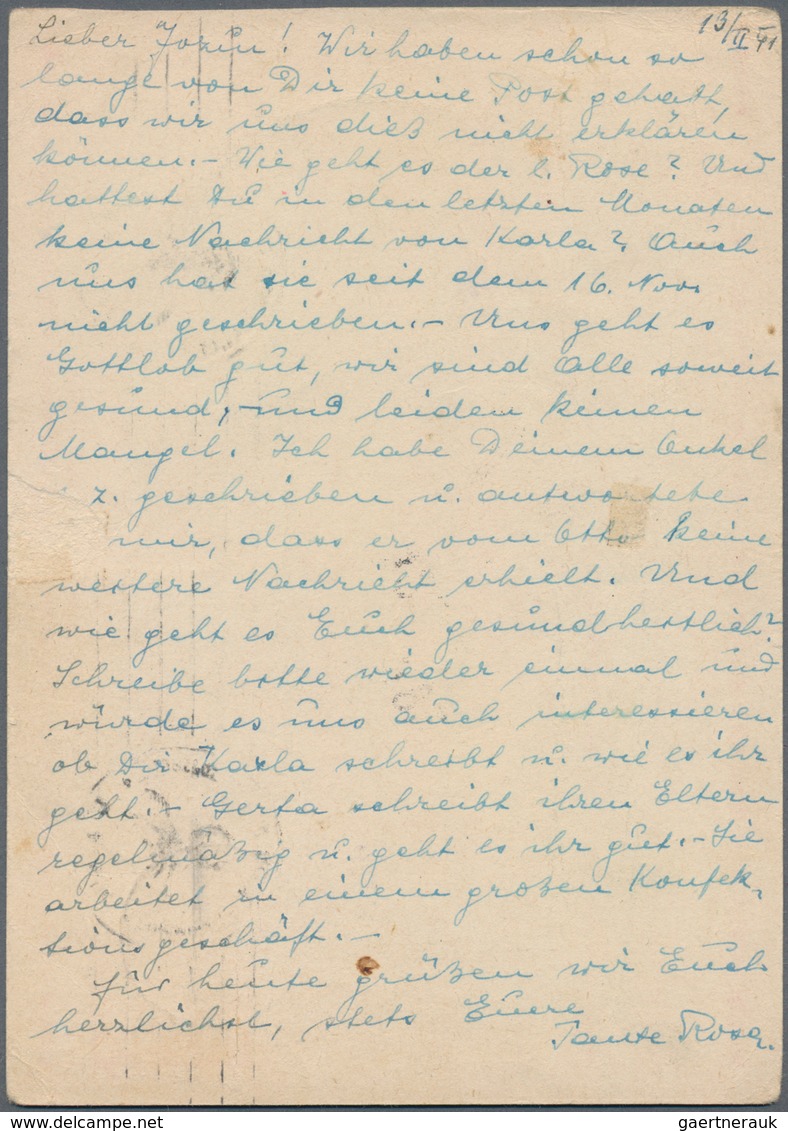 13/II 41
Lieber Jozin! Wir haben schon so
lange von Dir keine Post gehabt,
dass wir uns dieß nicht erklären
können.- Wie geht es der l. Rose? Und
hattest Du in den letzten Monaten
keine Nachricht von Karla? Auch
uns hat sie seit dem 16. Nov.
nicht geschrieben.- Uns geht es
Gottlob gut, wir sind Alle soweit
gesund, und leiden keinen
Mangel. Ich habe Deinem Onkel
z. geschrieben u. antwortete
mir, dass er vom Otto keine
weitere Nachricht erhielt. Und
wie geht es Euch gesundheitlich?
Schreibe bitte wieder einmal und
würde es uns auch interessieren
ob Dir Karla schreibt u. wie es ihr
geht.- Gerta schreibt ihren Eltern
regelmäßig u. geht es ihr gut.- Sie
arbeitet in einem großen Konfek-
tionsgeschäft.-
Für heute grüßen wir Euch
herzlichst, stets Euere
Tante Rosa.
gaertnerauk